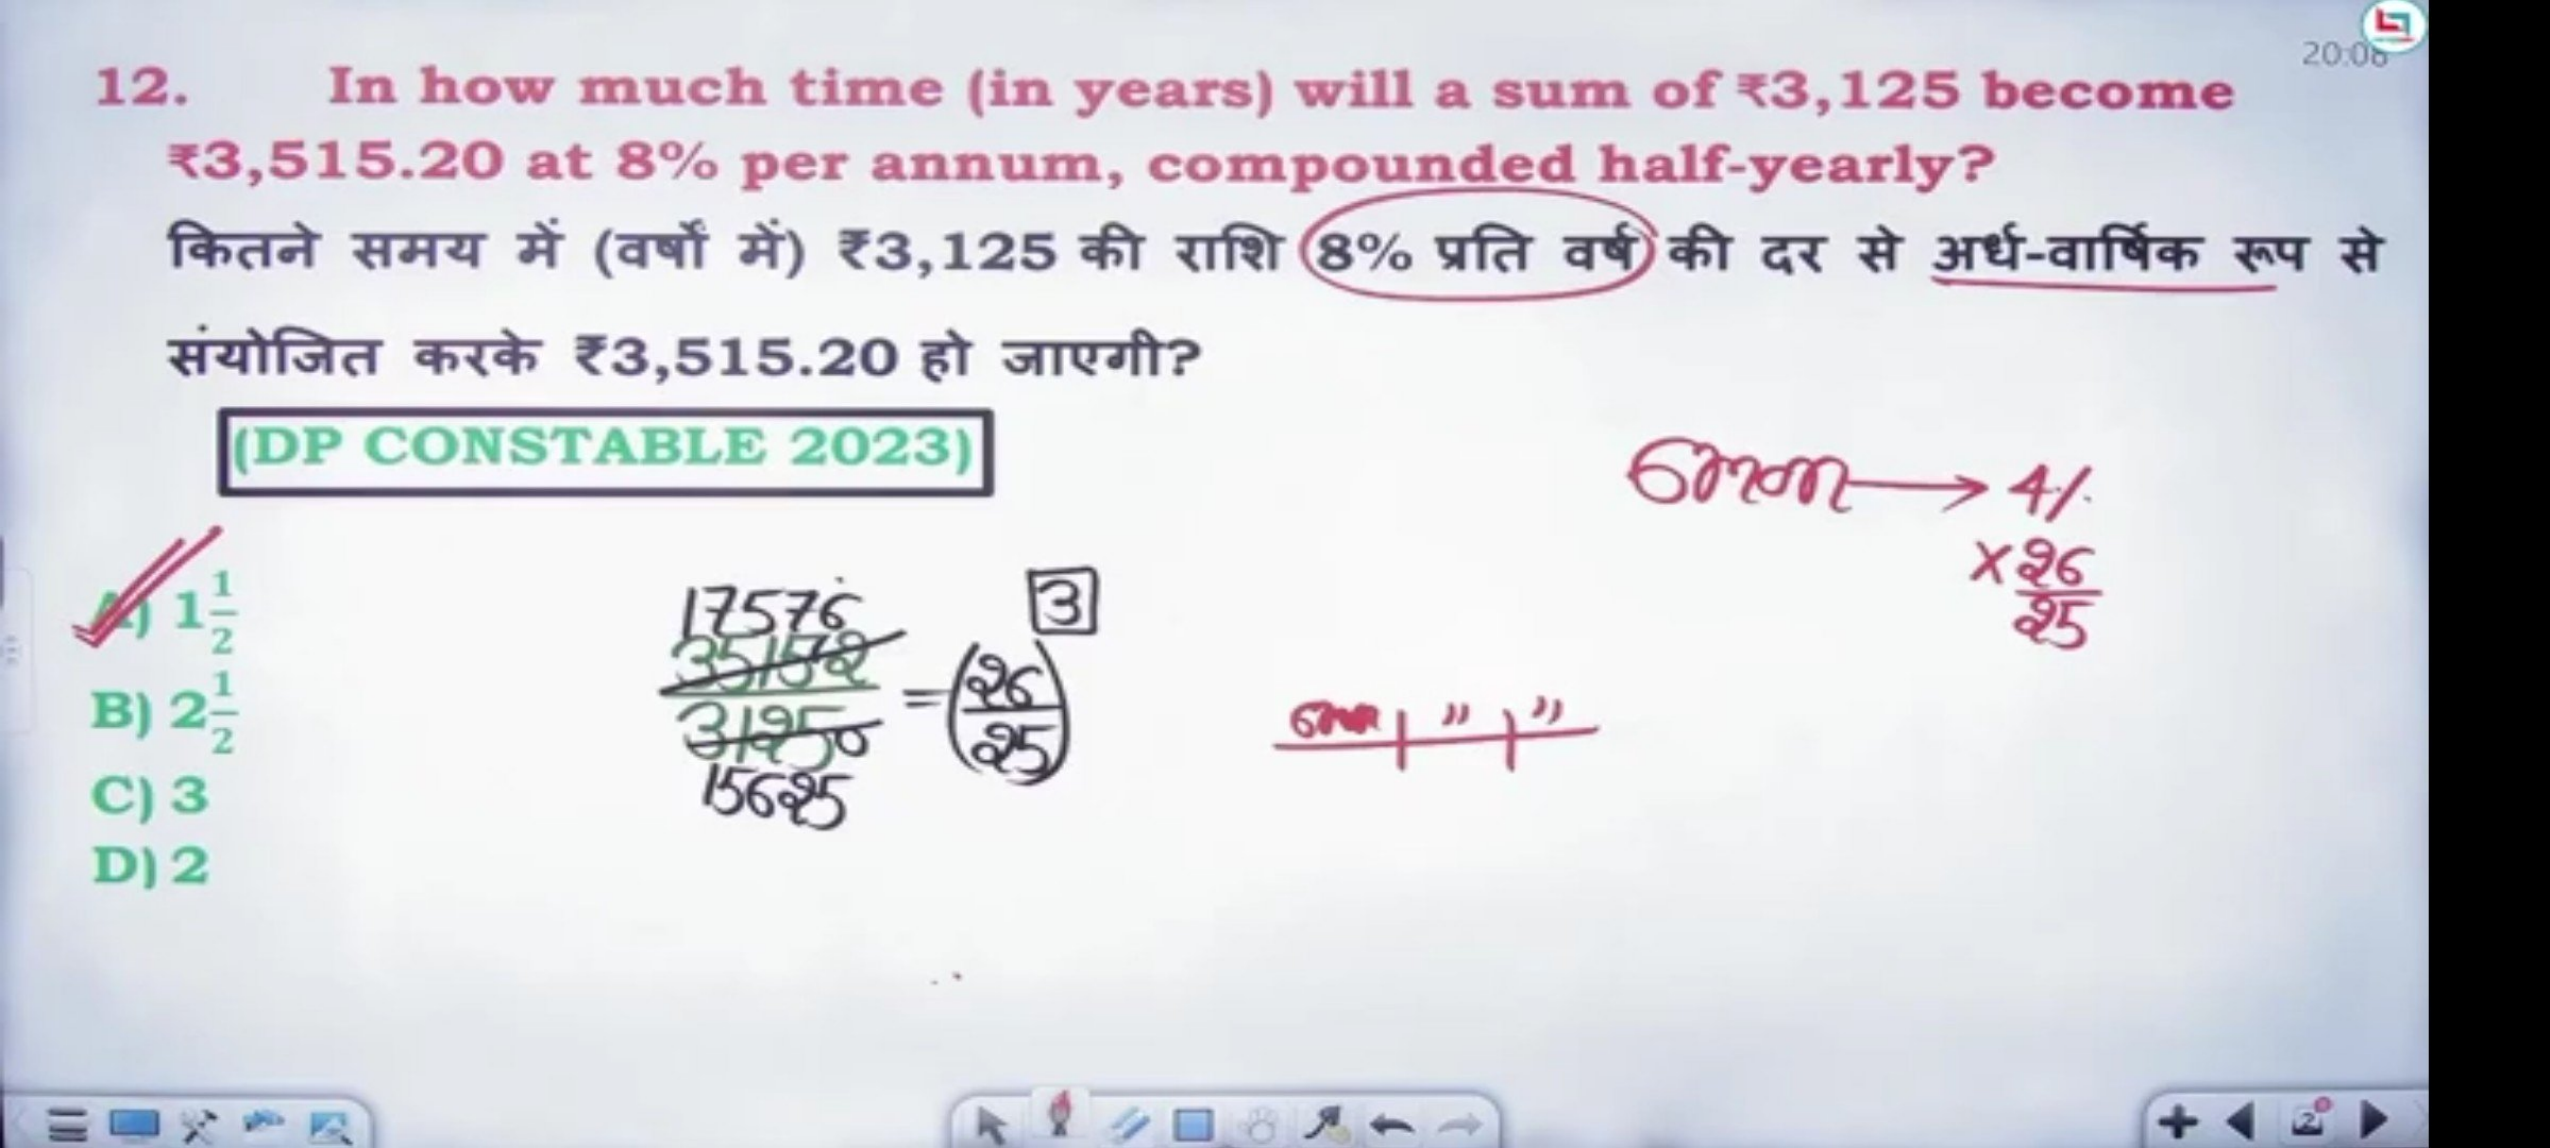 20:08
12. In how much time (in years) will a sum of ₹3,125 become
₹3,515.20 at 8% per annum, compounded half-yearly?
कितने समय में (वर्षों में) ₹3,125 की राशि 8% प्रति वर्ष की दर से अर्ध-वार्षिक रूप से
संयोजित करके ₹3,515.20 हो जाएगी?
(DP CONSTABLE 2023)
6मल → 4%
×26/25
A) 1 1/2
B) 2 1/2
C) 3
D) 2
17576
35152
31250
15625
= (26/25)
3
" | "